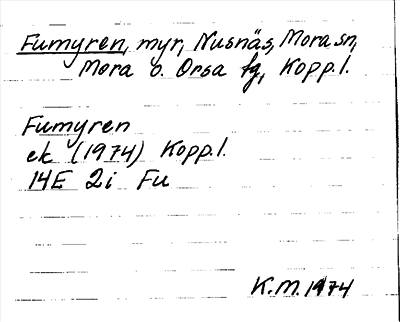 Fumyren, myr, Nusnäs, Mora sn,
Mora o. Orsa tg, Kopp.l.
Fumyren
ek (1974) Kopp.l.
14E 2i Fu
K.M. 1974